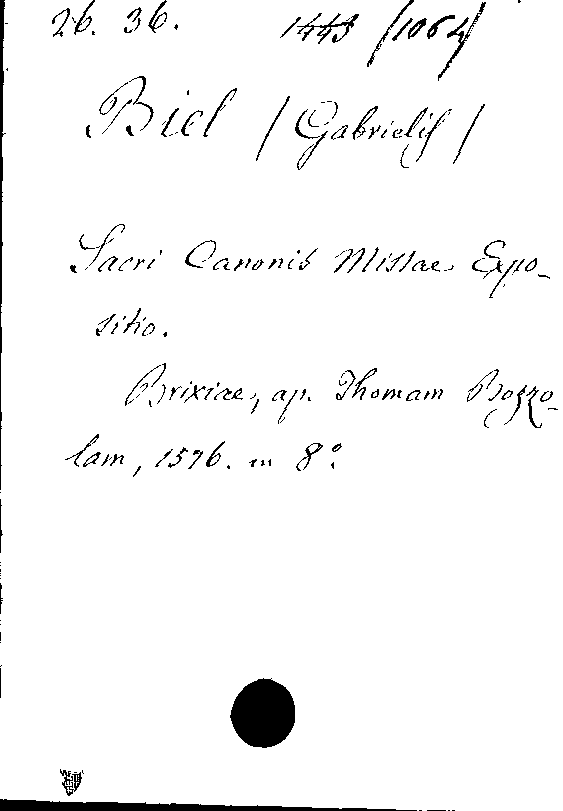 26. 36. 1443 (1064)
Biel (Gabrielis)
Sacri Canonis Missae Expo-
sitio.
Brixiae, ap. Thomam Bozzo-
lam, 1576. in 8°.